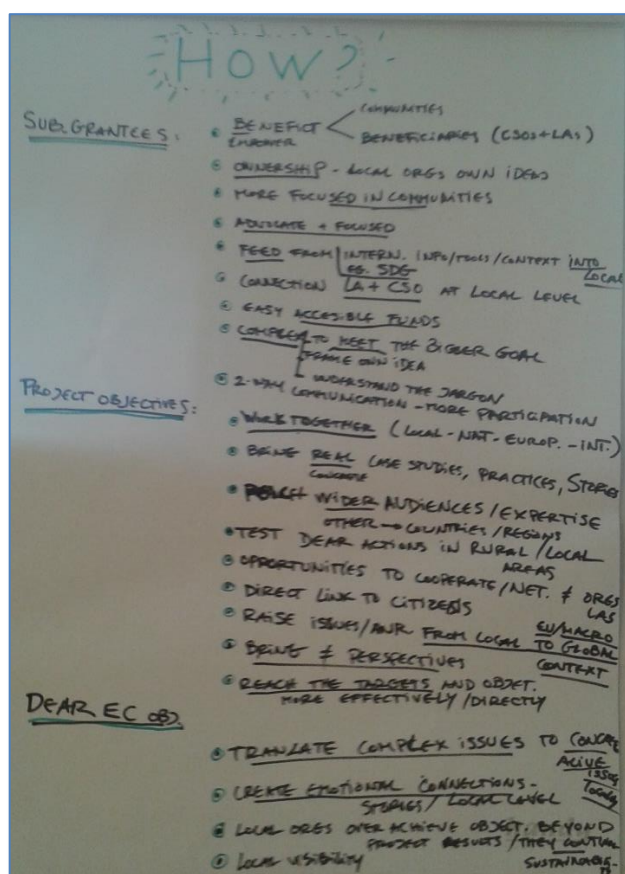 HOW?
SUB-GRANTEES:
• BENEFICT < COMMUNITIES
EMPOWER BENEFICIARIES (CSOs+LAs)
• OWNERSHIP - LOCAL ORGS OWN IDEAS
• MORE FOCUSED IN COMMUNITIES
• ADVOCATE + FOCUSED
• FEED FROM INTERN. INFO/TOOLS/CONTEXT INTO
EG. SDG LOCAL
• CONNECTION LA + CSO AT LOCAL LEVEL
• EASY ACCESIBLE FUNDS
• COMPLEX TO MEET THE BIGGER GOAL
FRAME OWN IDEA
UNDERSTAND THE JARGON
• 2-WAY COMMUNICATION - MORE PARTICIPATION
PROJECT OBJECTIVES:
• WORK TOGETHER (LOCAL - NAT - EUROP. - INT.)
• BRING REAL CASE STUDIES, PRACTICES, STORIES
CONCRETE
• REACH WIDER AUDIENCES / EXPERTISE
OTHER → COUNTRIES / REGIONS
• TEST DEAR ACTIONS IN RURAL / LOCAL
AREAS
• OPPORTUNITIES TO COOPERATE / NET. ≠ ORGS
LAS
• DIRECT LINK TO CITIZENS
• RAISE ISSUES/AWR FROM LOCAL TO GLOBAL
EU/MACRO
CONTEXT
• BRING ≠ PERSPECTIVES
• REACH THE TARGETS AND OBJET.
MORE EFFECTIVELY / DIRECTLY
DEAR EC OBJ.
• TRANSLATE COMPLEX ISSUES TO
ALIVE
ISSUES
LOCALLY
• CREATE EMOTIONAL CONNECTIONS -
STORIES / LOCAL LEVEL
• LOCAL ORGS OVER ACHIEVE OBJECT. BEYOND
PROJECT RESULTS / THEY
• LOCAL VISIBILITY